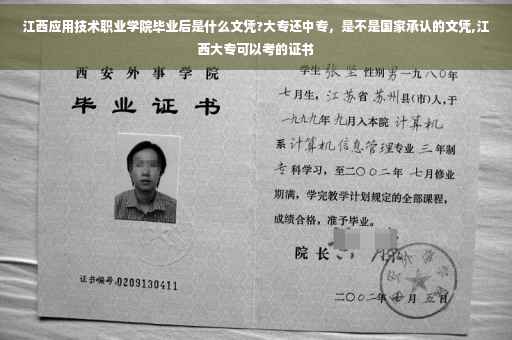 江西应用技术职业学院毕业后是什么文凭?大专还中专，是不是国家承认的文凭,江
西大专可以考的证书
西安外事学院
毕业证书
证书编号:0209130411
学生 张坚 性别 男 一九八〇年
七月生，江苏省 苏州 县(市)人，于
一九九九年九月入本院 计算机
系 计算机信息管理专业 三 年制
专科学习，至二〇〇二年 七月修业
期满，学完教学计划规定的全部课程，
成绩合格，准予毕业。
院长
二〇〇二年 七月 五日